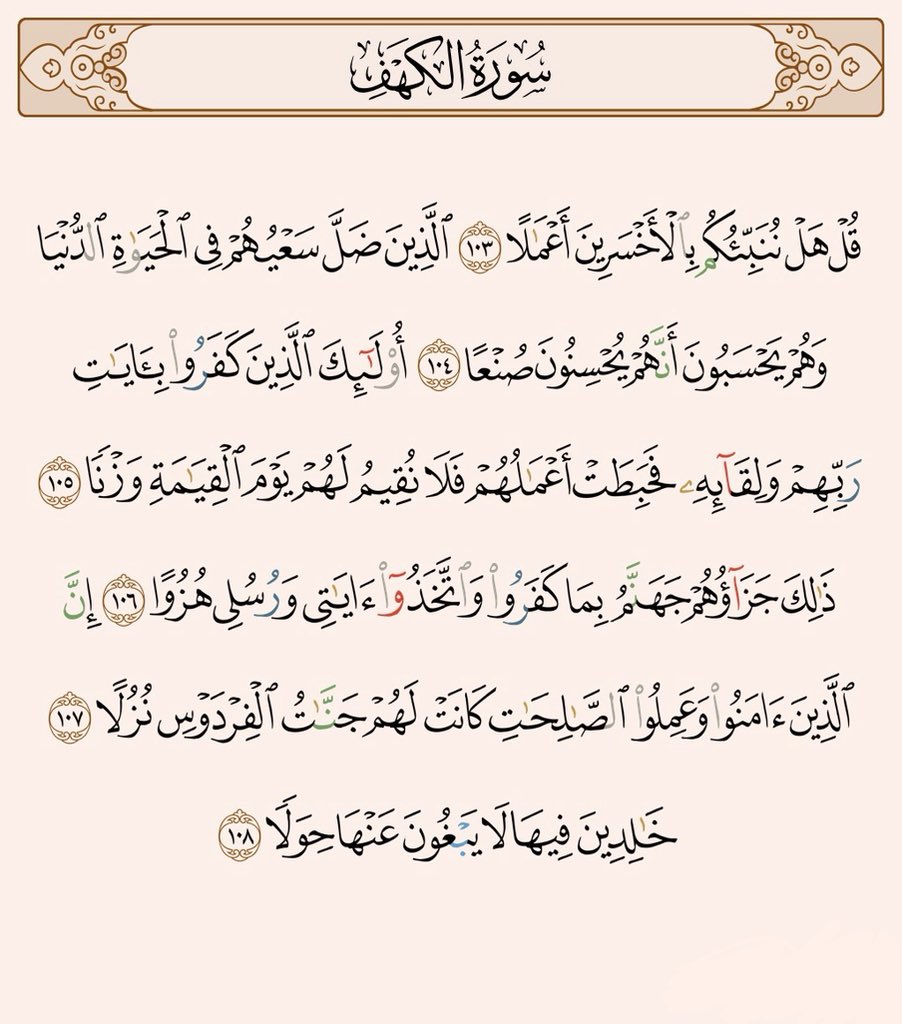 سُورَةُ الكَهۡفِ
قُلۡ هَلۡ نُنَبِّئُكُم بِٱلۡأَخۡسَرِينَ أَعۡمَٰلًا ١٠٣ ٱلَّذِينَ ضَلَّ سَعۡيُهُمۡ فِي ٱلۡحَيَوٰةِ ٱلدُّنۡيَا
وَهُمۡ يَحۡسَبُونَ أَنَّهُمۡ يُحۡسِنُونَ صُنۡعًا ١٠٤ أُوْلَٰٓئِكَ ٱلَّذِينَ كَفَرُواْ بِـَٔايَٰتِ
رَبِّهِمۡ وَلِقَآئِهِۦ فَحَبِطَتۡ أَعۡمَٰلُهُمۡ فَلَا نُقِيمُ لَهُمۡ يَوۡمَ ٱلۡقِيَٰمَةِ وَزۡنٗا ١٠٥
ذَٰلِكَ جَزَآؤُهُمۡ جَهَنَّمُ بِمَا كَفَرُواْ وَٱتَّخَذُوٓاْ ءَايَٰتِي وَرُسُلِي هُزُوًا ١٠٦ إِنَّ
ٱلَّذِينَ ءَامَنُواْ وَعَمِلُواْ ٱلصَّٰلِحَٰتِ كَانَتۡ لَهُمۡ جَنَّٰتُ ٱلۡفِرۡدَوۡسِ نُزُلًا ١٠٧
خَٰلِدِينَ فِيهَا لَا يَبۡغُونَ عَنۡهَا حِوَلٗا ١٠٨